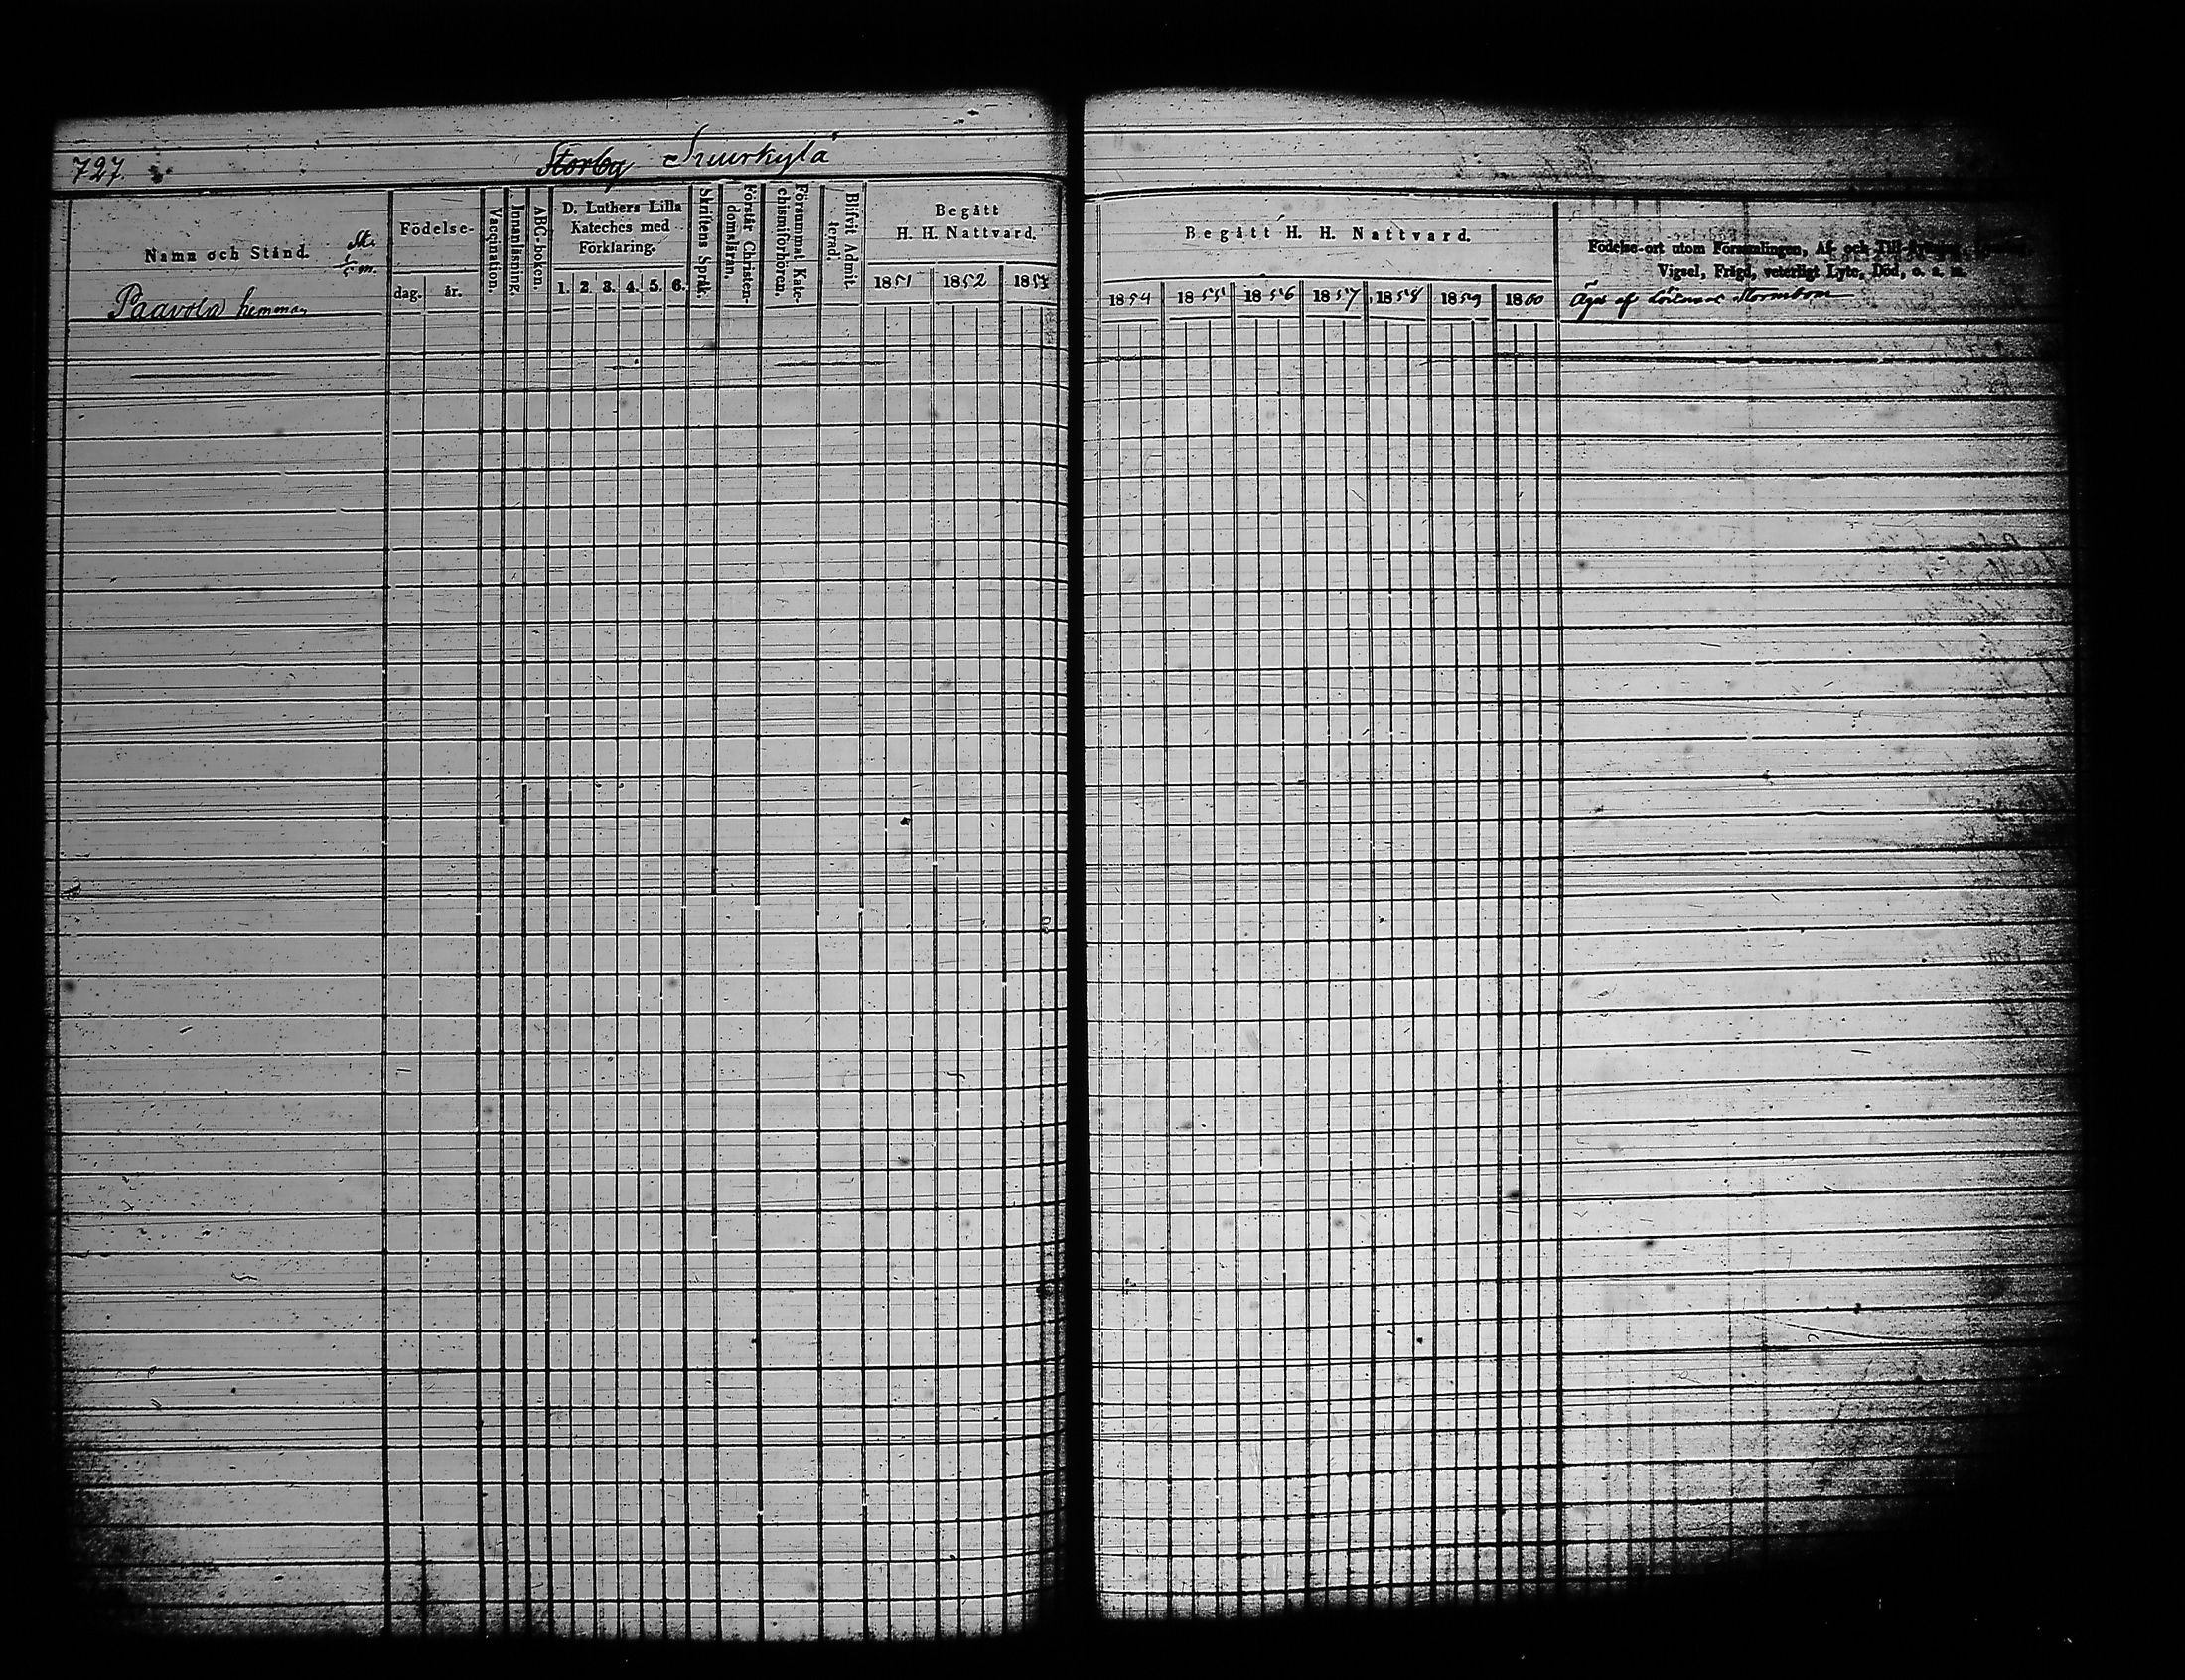 727.
Storby Suurkylä
Namn och Stånd.
Födelse-
dag. år.
Vaccination.
Innanläsning.
ABC-boken.
D. Luthers Lilla
Kateches med
Förklaring.
1. 2. 3. 4. 5. 6.
Skriftens Språk.
Förstår Christen-
domsläran.
Försummat Kate-
chismiförhören.
Blifvit Admit-
terad.
Begått
H. H. Nattvard.
1851 1852 1853
Paavola hemman
Begått H. H. Nattvard.
1854 1855 1856 1857 1858 1859 1860
Födelse-ort utom Församlingen, Af- och Till-
Vigsel, Frägd, veterligt Lyte, Död, o. s. m.
Äges af Löitnant Stormbom